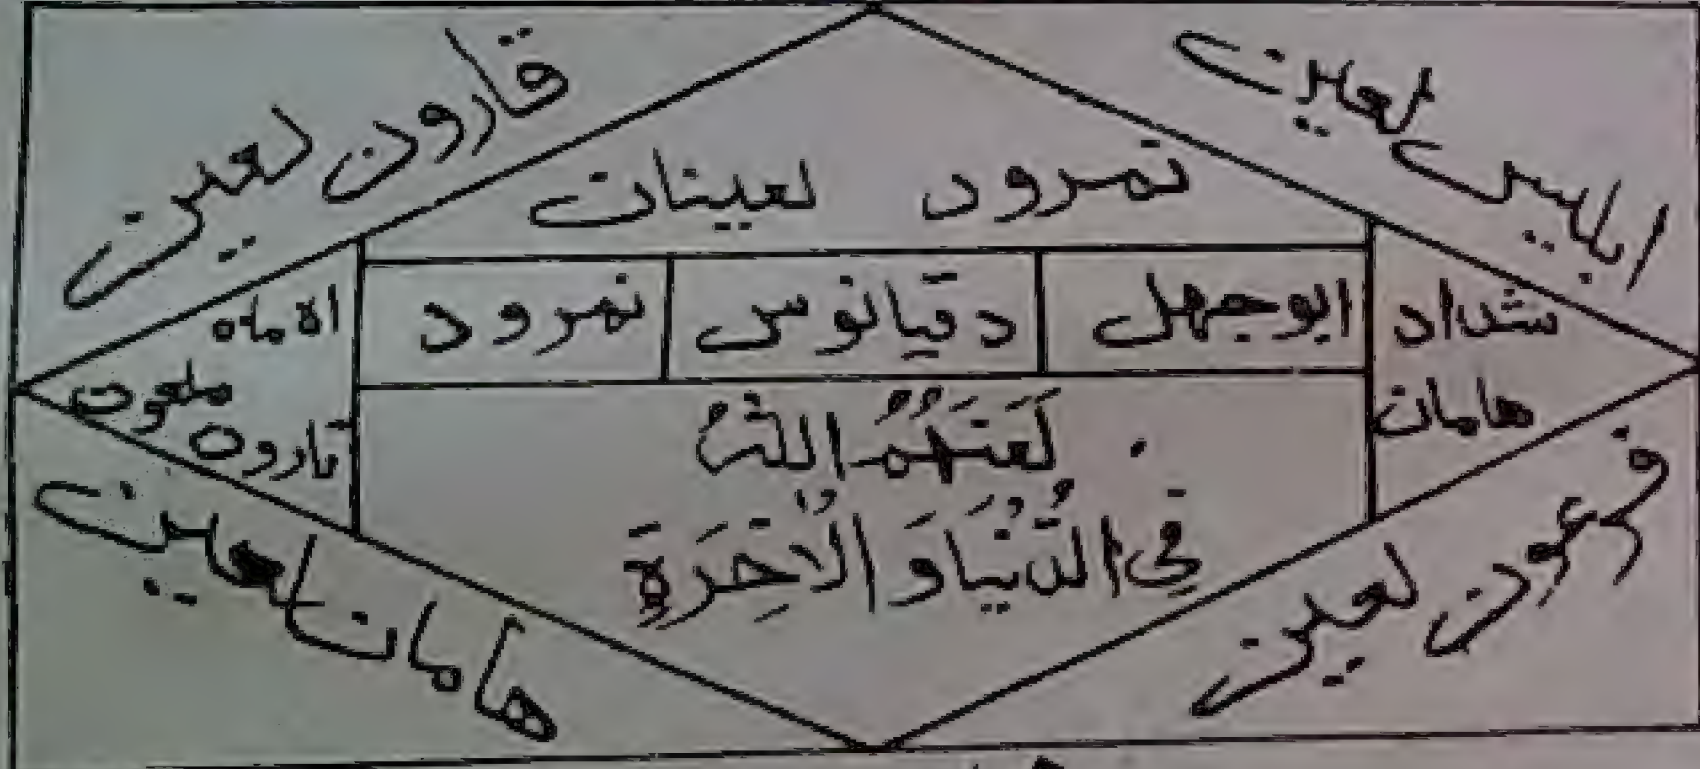 ابلیس لعین
قارون لعین
نمرود لعینان
شداد
ابوجهل
دقیانوس
نمرود
هامان
ملعون
لَعَنَهُمُ اللّٰهُ
فِی الدُّنْیَا وَ الْاٰخِرَةِ
فرعون لعین
هامان لعین